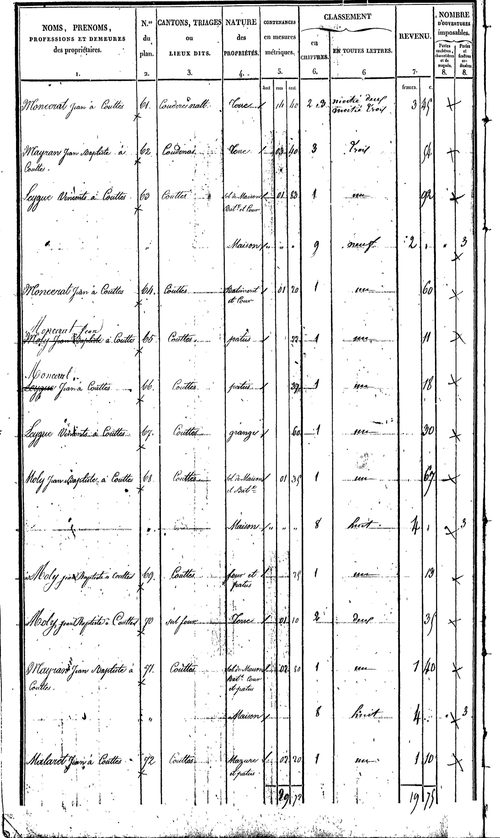 NOMS, PRENOMS, PROFESSIONS ET DEMEURES des propriétaires. | N.os du plan. | CANTONS, TRIAGES ou LIEUX DITS. | NATURE des PROPRIÉTÉS. | CONTENANCES en mesures métriques. | CLASSEMENT en CHIFFRES. | EN TOUTES LETTRES. | REVENU. | NOMBRE D'OUVERTURES imposables.
1. 2. 3. 4. 5. 6. 6 7. 8. 8.
francs. c.
Moncerat Jean à Couttes 61. 14 40 2 3 moitié deux moitié trois 3 45
Mayran Jean Baptiste à Couttes. 62. 03 40 3 Trois
Leygue à Couttes 63 Couttes sol de Maison Bat.t et Cour 01 83 1 un 92
Maison 9 neuf 2 3
Moncerat Jean à Couttes 64. Couttes Batiment et Cour 01 20 1 un 60
Moncerat Jean
Moly Jean Baptiste à Couttes 65 Couttes patus 22 1 un 11
Moncerat
Leygue Jean à Couttes 66. Couttes patus 1 un 18
Leygue à Couttes 67. Couttes grange 60 1 un 30
Moly Jean Baptiste à Couttes 68 Couttes sol de Maison et Bat.t 01 35 1 un 67
Maison 8 huit 4 3
Moly Jean Baptiste à Couttes 69. Couttes four et patus 25 1 un 13
Moly Jean Baptiste à Couttes 70 sul four 01 10 2 deux 35
Mayran Jean Baptiste à Couttes. 71. Couttes sol de Maison Bat.t Cour et patus 02 80 1 un 1 40
Maison 8 huit 4 3
Malaret Jean à Couttes 72 Couttes Mazure et patus 02 20 1 un 1 10
29 72 19 75